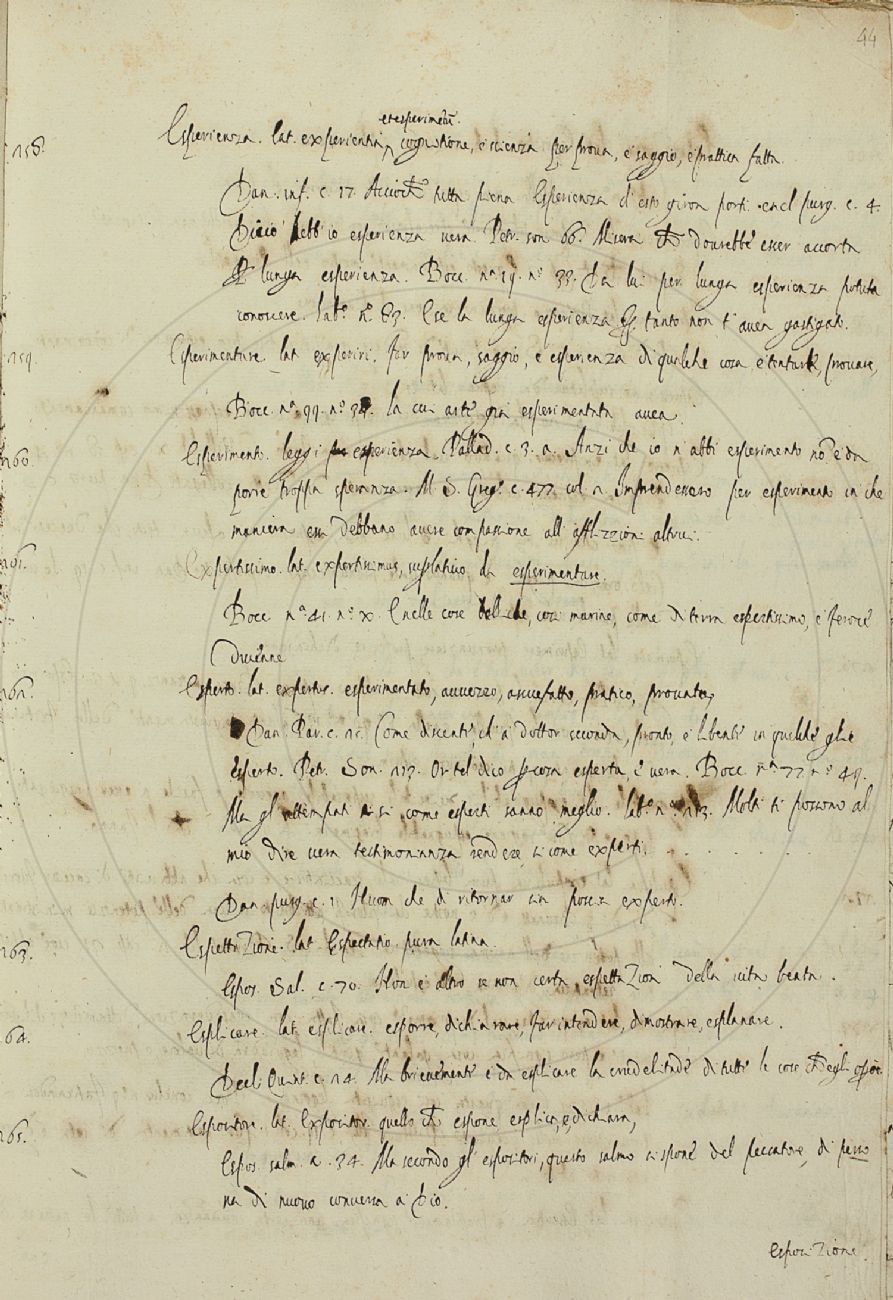 44
et experimẽtũ.
158. Esperienza. lat. experientia, cognitione, e scienza per prova, e saggio, e prattica fatta.
Dan. inf. c. 17. Acciochè tutta piena Esperienza d'esto giron porti. e nel purg. c. 4.
Di ciò hebb'io esperienza vera. Petr. son. 66. Misera che dovrebbe esser accorta
Per lunga esperienza. Bocc. nª 19. nº 33. Da lui per lunga esperienza potuta
conoscere. labº nº 83. E se la lunga esperienza tanto non t'avea gastigato.
159. Esperimentare. lat. experiri. far prova, saggio, e esperienza di qualche cosa, e tentare, provare,
Bocc. nª 99. nº 34. la cui arte già esperimentata avea.
160. Esperimento. leggi esperienza. Pallad. c. 3. a. Anzi che io n'abbi esperimento nõ è da
porre troppa speranza. M. S. Gregº c. 477. col. Imprendessero per esperimento in che
maniera essi debbano avere compassione all'afflizzioni altrui.
161. Expertissimo. lat. expertissimus, superlativo da esperimentare.
Bocc. nª 41. nº x. E nelle cose belliche, così marine, come di terra espertissimo, e feroce
divenne
162. Esperto. lat. expertus. esperimentato, avvezzo, assuefatto, pratico, provato,
Dan. Par. c. Come discente, ch'a dottor seconda, pronto, e libente in quel ch'egli è
esperto. Petr. Son. Or tel dico per cosa esperta, e vera. Bocc. nª 77. nº 49.
Ma gl'attempati si come esperti sanno meglio. labº nº 113. Molti ti possono al
mio dire vera testimonianza rendere si come experti.
Dan. purg. c. 1. Huom che di ritornar sia poscia experto.
163. Espettazione. lat. Expectatio. pura latina.
Espos. Sal. c. 70. Non è altro se non certa espettazion della vita beata.
164. Esplicare. lat. esplicare. esporre, dichiarare, far intendere, dimostrare, esplanare.
Decl. Quint. c. 14. Ma brievemente è da esplicare la crudelitade di tutte le cose che egli
165. Espositore. lat. Expositor. quello che espone, esplica, e dichiara,
Espos. salm. a. 34. Ma secondo gl'espositori, questo salmo si spone del peccatore, di perso
na di nuovo conversa a Dio.
Esposizione.